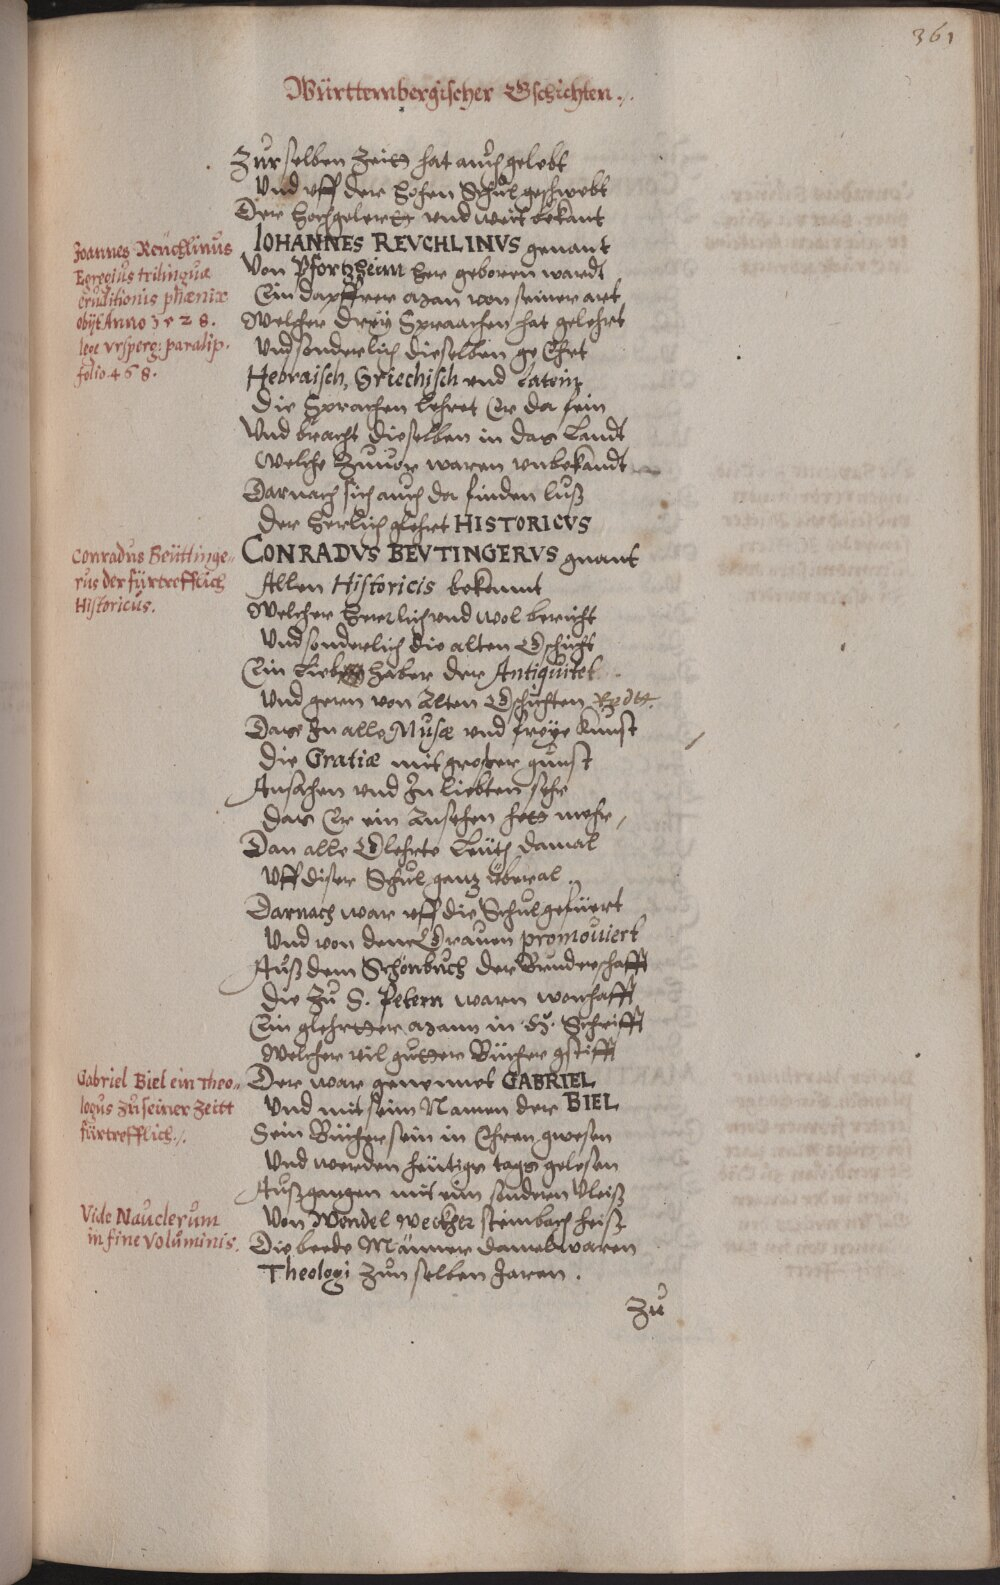 361
Württembergischer Gschichten.
Zur selben Zeitt hat auch gelebt
Und uff der Hohen Schul geschwebt
Der Hochgelertt und weit bekant
IOHANNES REVCHLINVS genant
Von Pfortzheim her geboren wardt
Ein dapfferer Man von seiner art
Welcher drey Spraachen hat gelehrt
Und sonderlich dieselben geEhrt
Hebraisch, Griechisch und Latein
Die Sprachen lehret Er da fein
Und bracht dieselben in das Landt
Welche Zuuor waren unbekandt
Darnach sich auch da finden luß
Der Herlich glehrt HISTORICVS
CONRADVS BEVTINGERVS gnant
Allen Historicis bekannt
Welcher Herrlich und wol bericht
Und sonderlich die alten Gschicht
Ein Lieb haber der Antiquitet
Und geren von Alten Gschichten Redtt.
Das In alle Musæ und freye Kunst
Die Gratiæ mit groser gunst
Ansahen und In liebten sehr
Das Er ein Ansehen hett mehr,
Dan alle Glehrte Leüth damal
Uff diser Schul ganz überal.
Darnach war uff die Schul gefüert
Und von dem Grauen promouiert
Auß dem Schönbuch der Bruderschafft
Die Zu S. Petern warn wonhafft
Ein glehrtter Mann in H. Schrifft
Welcher vil gutter Bücher gstifft
Der war genennet GABRIEL
Und mit seim Namen der BIEL
Sein Bücher sein in Ehren gwesen
Und werden heutigs tags gelesen
Außgangen mit eim sonderen Vleiß
Von Wendel Weckher Steinbach heist
Die beede Männer damal waren
Theologi Zun selben Jaren.
Zu
Joannes Reuchlinus
Egregius trilinguæ
eruditionis phænix
obijt Anno 1528.
lege Vrsperg: paralip.
folio. 468.
Conradus Beüttinge-
rus der fürtrefflich
Historicus.
Gabriel Biel ein Theo-
logus zu seiner Zeitt
fürtrefflich.
Vide Nauclerum
in fine Voluminis.